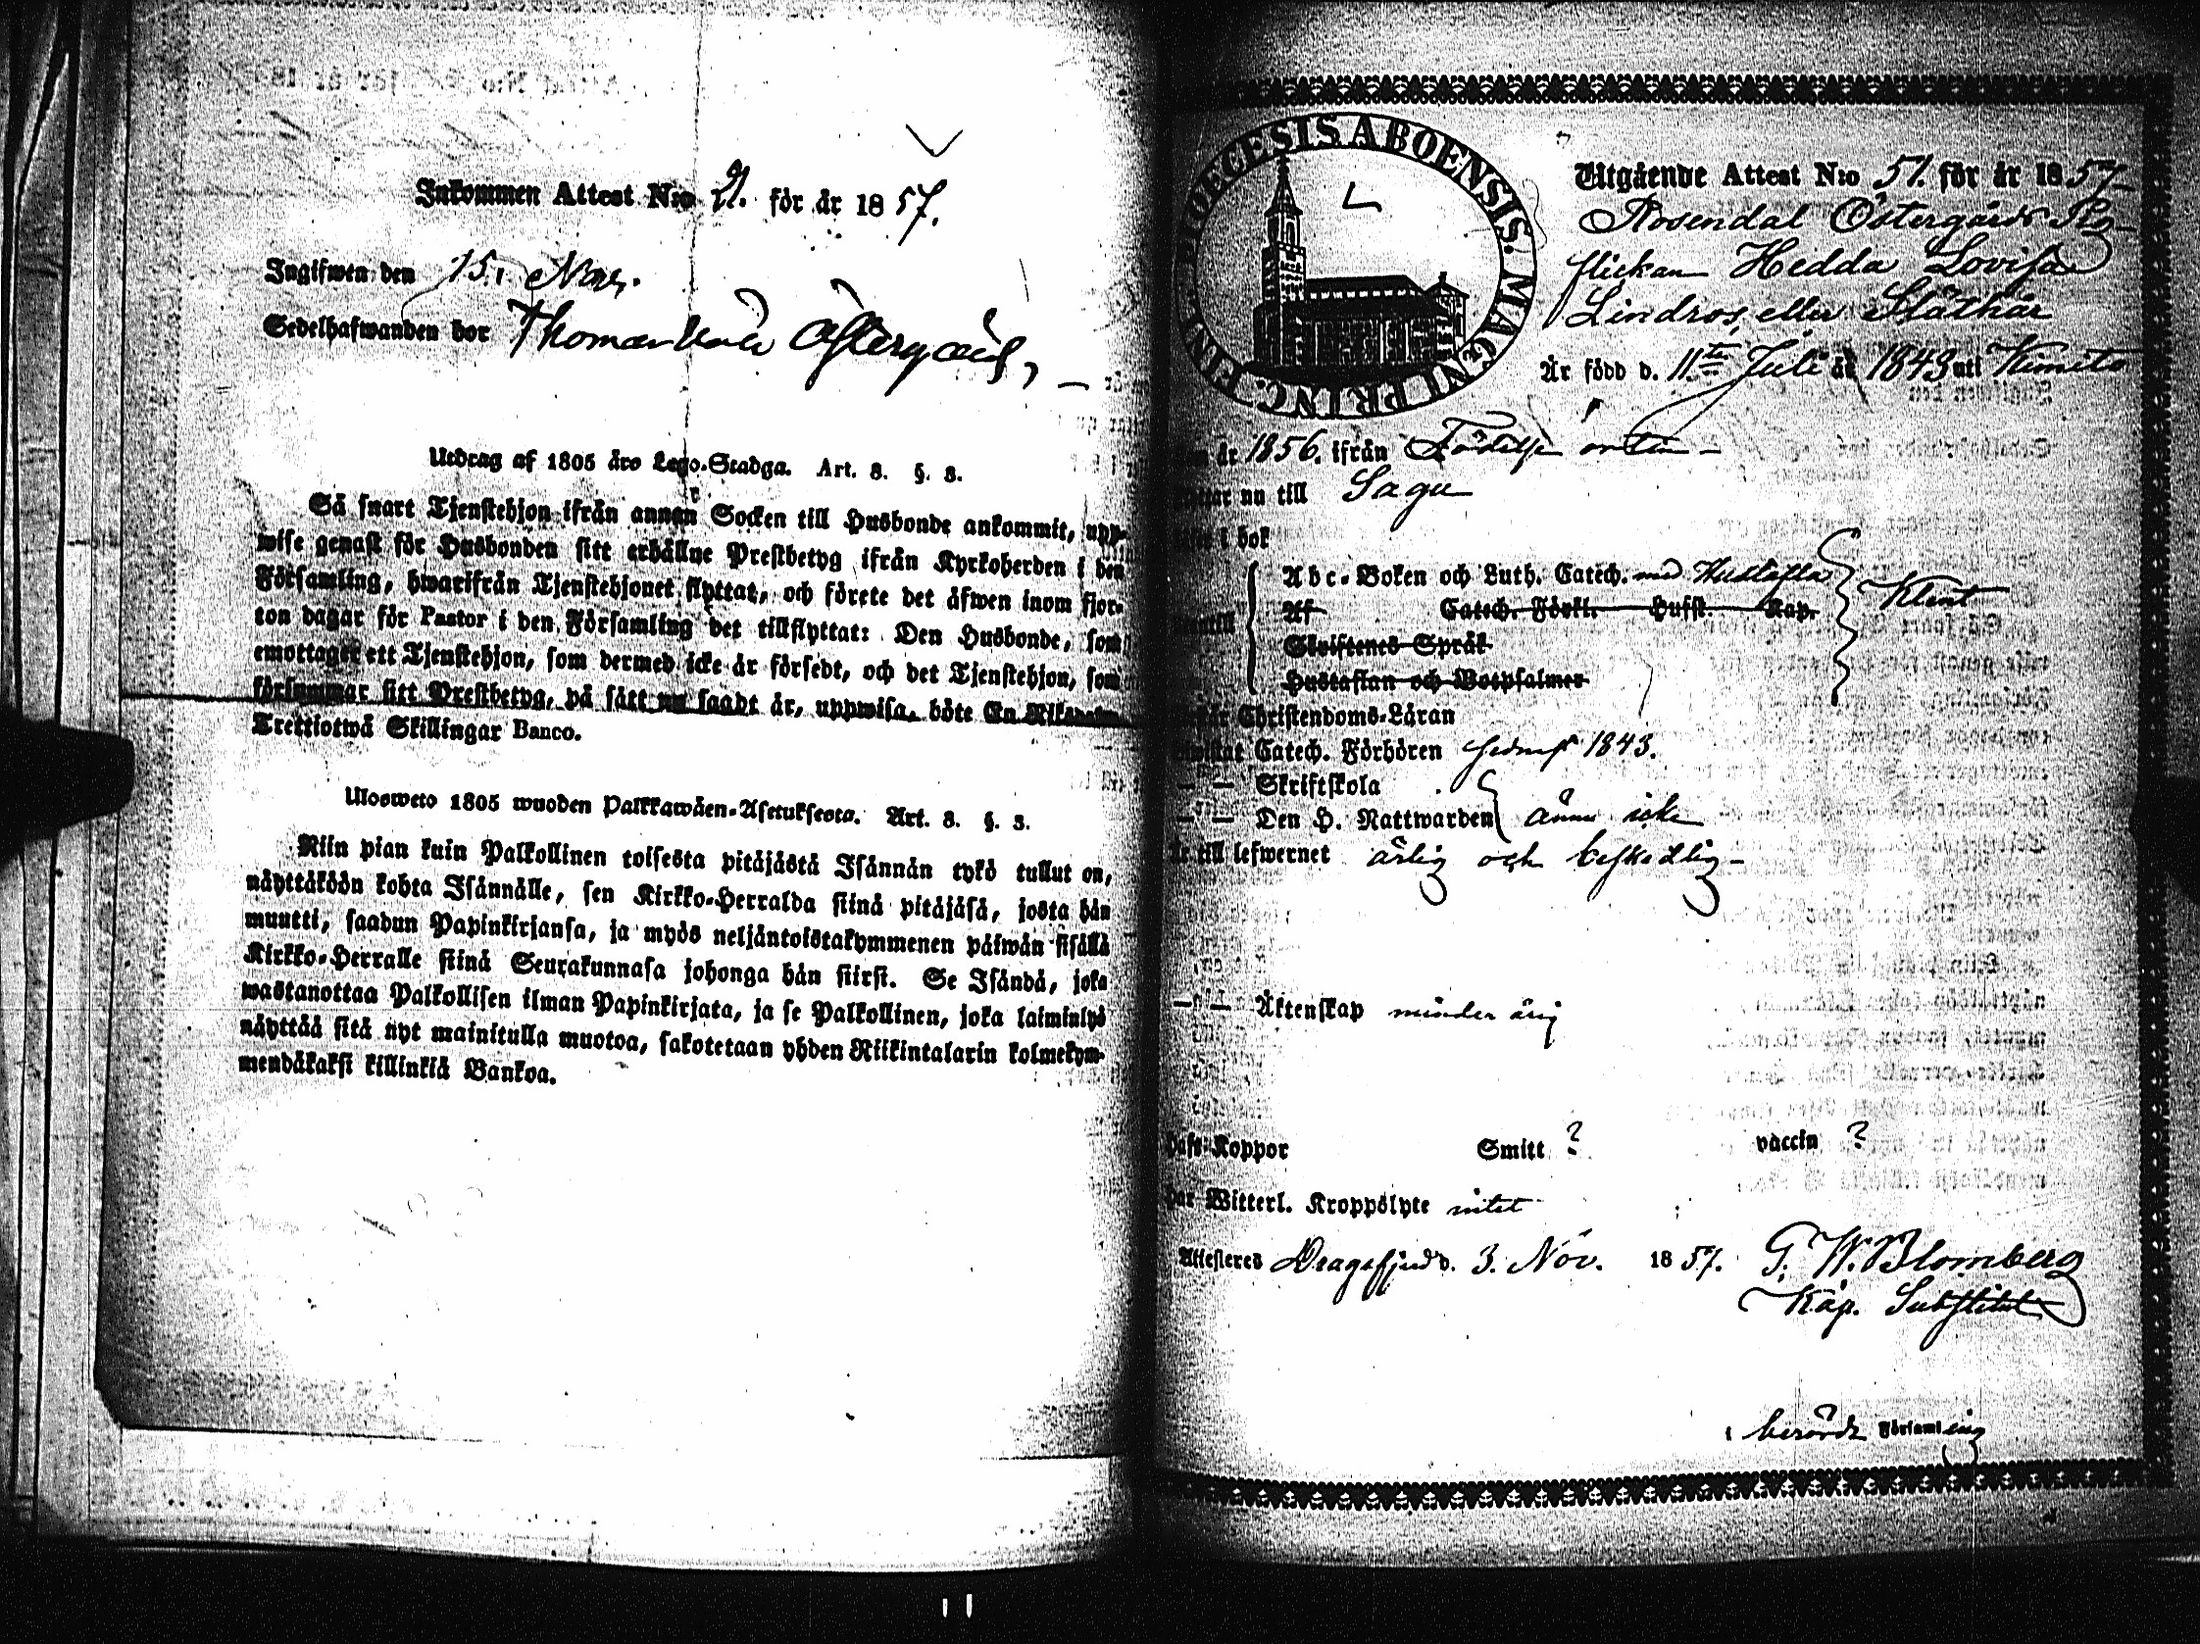 Inkommen Attest N:o 21. för år 1857.
Ingifwen den 15. Nov.
Sedelhafwanden bor Östergård,
Utdrag af 1805 års Lego-Stadga. Art. 8. §. 3.
Så snart Tjenstehjon ifrån annan Socken till Husbonde ankommit, upp-
wise genast för Husbonden sitt erhållne Prestbetyg ifrån Kyrkoherden i den
Församling, hwarifrån Tjenstehjonet flyttat, och förete det äfwen inom fjor-
ton dagar för Pastor i den Församling det tillflyttat: Den Husbonde, som
emottager ett Tjenstehjon, som dermed icke är försedt, och det Tjenstehjon, som
försummar sitt Prestbetyg, på sätt nu sagdt är, uppwisa, böte En Riksdaler
Trettiotwå Skillingar Banco.
Ulosweto 1805 wuoden Palkkawäen-Asetuksesta. Art. 8. §. 3.
Niin pian kuin Palkollinen toisesta pitäjästä Isännän tykö tullut on,
näyttäköön kohta Isännälle, sen Kirkko-Herralda siinä pitäjäsä, josta hän
muutti, saadun Papinkirjansa, ja myös neljäntoistakymmenen päiwän sisällä
Kirkko-Herralle siinä Seurakunnasa johonga hän siirsi. Se Isändä, joka
wastanottaa Palkollisen ilman Papinkirjata, ja se Palkollinen, joka laiminlyö
näyttää sitä nyt mainitulla muotoa, sakotetaan yhden Riikintalarin kolmekym-
mendäkaksi killinkiä Bankoa.
DIOECESIS ABOENSIS. MAGNI PRINC. FINL.
Utgående Attest N:o 51. för år 1857
Rosendal Östergårds
flickan Hedda Lovisa
Lindros, eller Släthår
Är född d. 11te Juli år 1843 uti Kimito
år 1856. ifrån Födelse orten
nu till Sagu
i bok
Abc-Boken och Luth. Catech. med Hustafla Klent
Af Catech. Förkl. Hufst. Kap.
Skriftenes Språk
Hustaflan och Botpsalmer
Christendoms-Läran
Catech. Förhören sednast 1843.
— — Skriftskola
— — Den H. Nattwarden ännu icke
är till lefwernet ärlig och beskedlig
— — Äktenskap minder årig
haft Koppor Smitt ? vaccin ?
har Witterl. Kroppslyte intet
Attesteras Dragsfjerd d. 3. Nov. 1857. G. W. Blomberg
Kap. Substitut
i berörde Församling